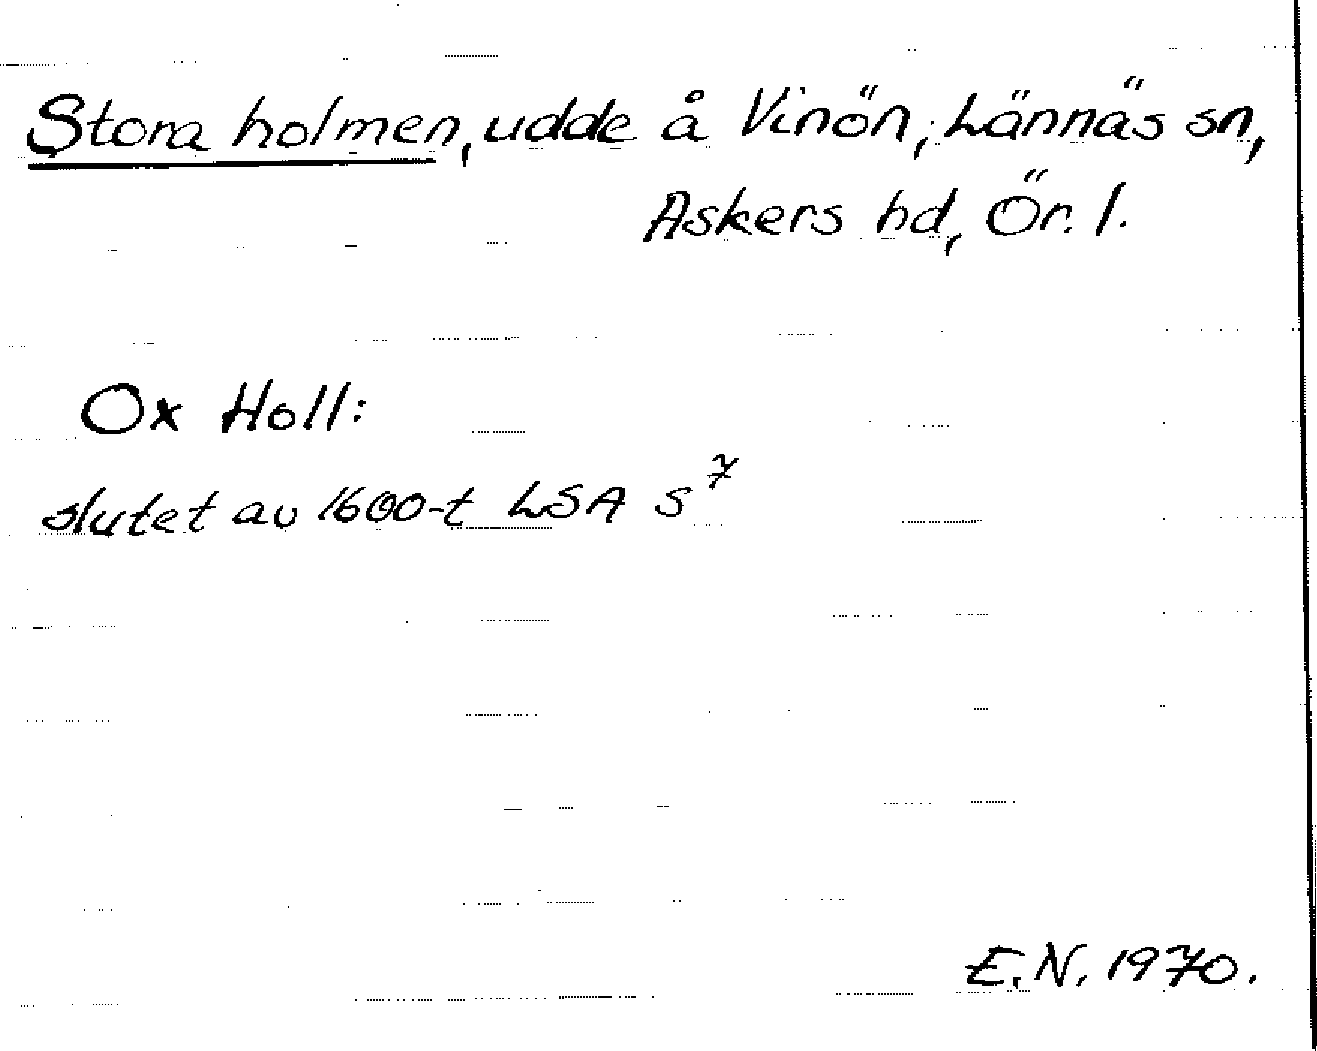 Stora holmen, udde å Vinön, Lännäs sn,
Askers hd, Ör. l.
Ox Holl:
slutet av 1600-t LSA S⁷
E.N. 1970.